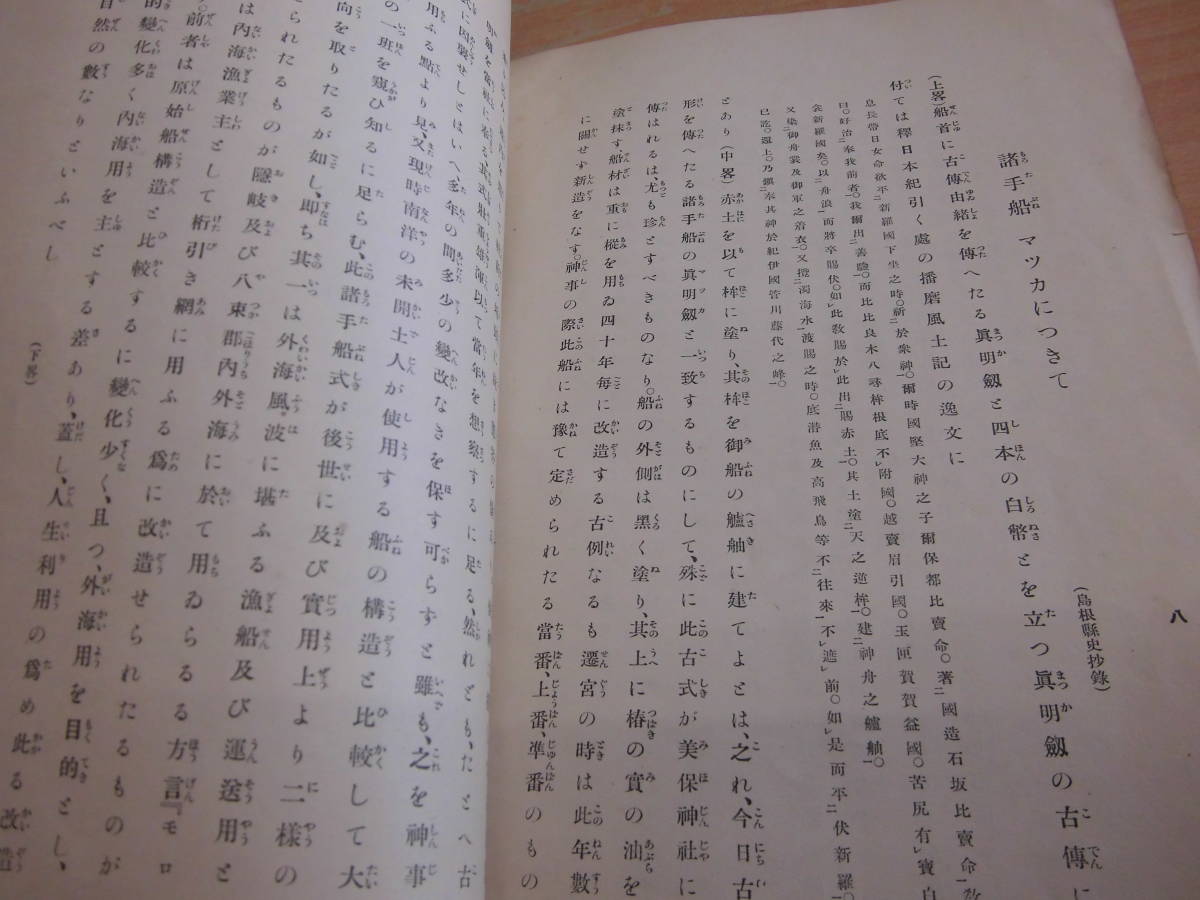 八
諸手船 マツカにつきて
(島根縣史抄錄)
(上畧)船首に古傳由緒を傳へたる眞明劔と四本の白幣とを立つ眞明劔の古傳に
付ては釋日本紀引く處の播磨風土記の逸文に
息長帶日女命欲平新羅國下坐之時。祈於衆神。爾時國堅大神之子爾保都比賣命。著國造石坂比賣命
曰。好治奉我前者。我爾出善驗。而比比良木八尋桙根底不附國。越賣眉引國。玉匣賀賀益國。苦尻有寶白
衾新羅國矣。以舟浪而將平賜伏。如此敎賜於此出賜赤土。其土塗天之逆桙。建神舟之艫舳。
又染御舟裳及御軍之着衣。又攪濁海水渡賜之時。底潛魚及高飛鳥等不往來不遮前。如是而平伏新羅。
已訖。還上。乃鎭奉其神於紀伊國管川藤代之峰。
とあり(中畧)赤土を以て桙に塗り、其桙を御船の艫舳に建てよとは、之れ、今日古
形を傳へたる諸手船の眞明劔と一致するものにして、殊に此古式が美保神社に
傳はれるは、尤も珍とすべきものなり。船の外側は黑く塗り、其上に椿の實の油を
塗抹す、船材は重に樅を用ゐ四十年每に改造する古例なるも遷宮の時は此年數
に關せず新造をなす。神事の際此船には豫て定められたる當番、上番、準番のもの
式に因襲せしとはいへ、多年の間多少の變改なきを保す可らずと雖も、之を神事
用ふる點より見、又現時南洋の未開土人が使用する船の構造と比較して大
の一班を窺ひ知るに足らむ、此諸手船式が後世に及び實用上より二樣の
向を取りたるが如し、即ち其一は外海風波に堪ふる漁船及び運送用と
られたるものが隱岐及び八束郡內外海に於て用ゐらるる方言『モロ
は內海漁業主として桁引き網に用ふる爲に改造せられたるものが
前者は原始船構造と比較するに變化少く、且つ、外海用を目的とし、
的變化多く內海用を主とする差あり、蓋し、人生利用の爲め此る改造
自然の數なりといふべし
(下畧)